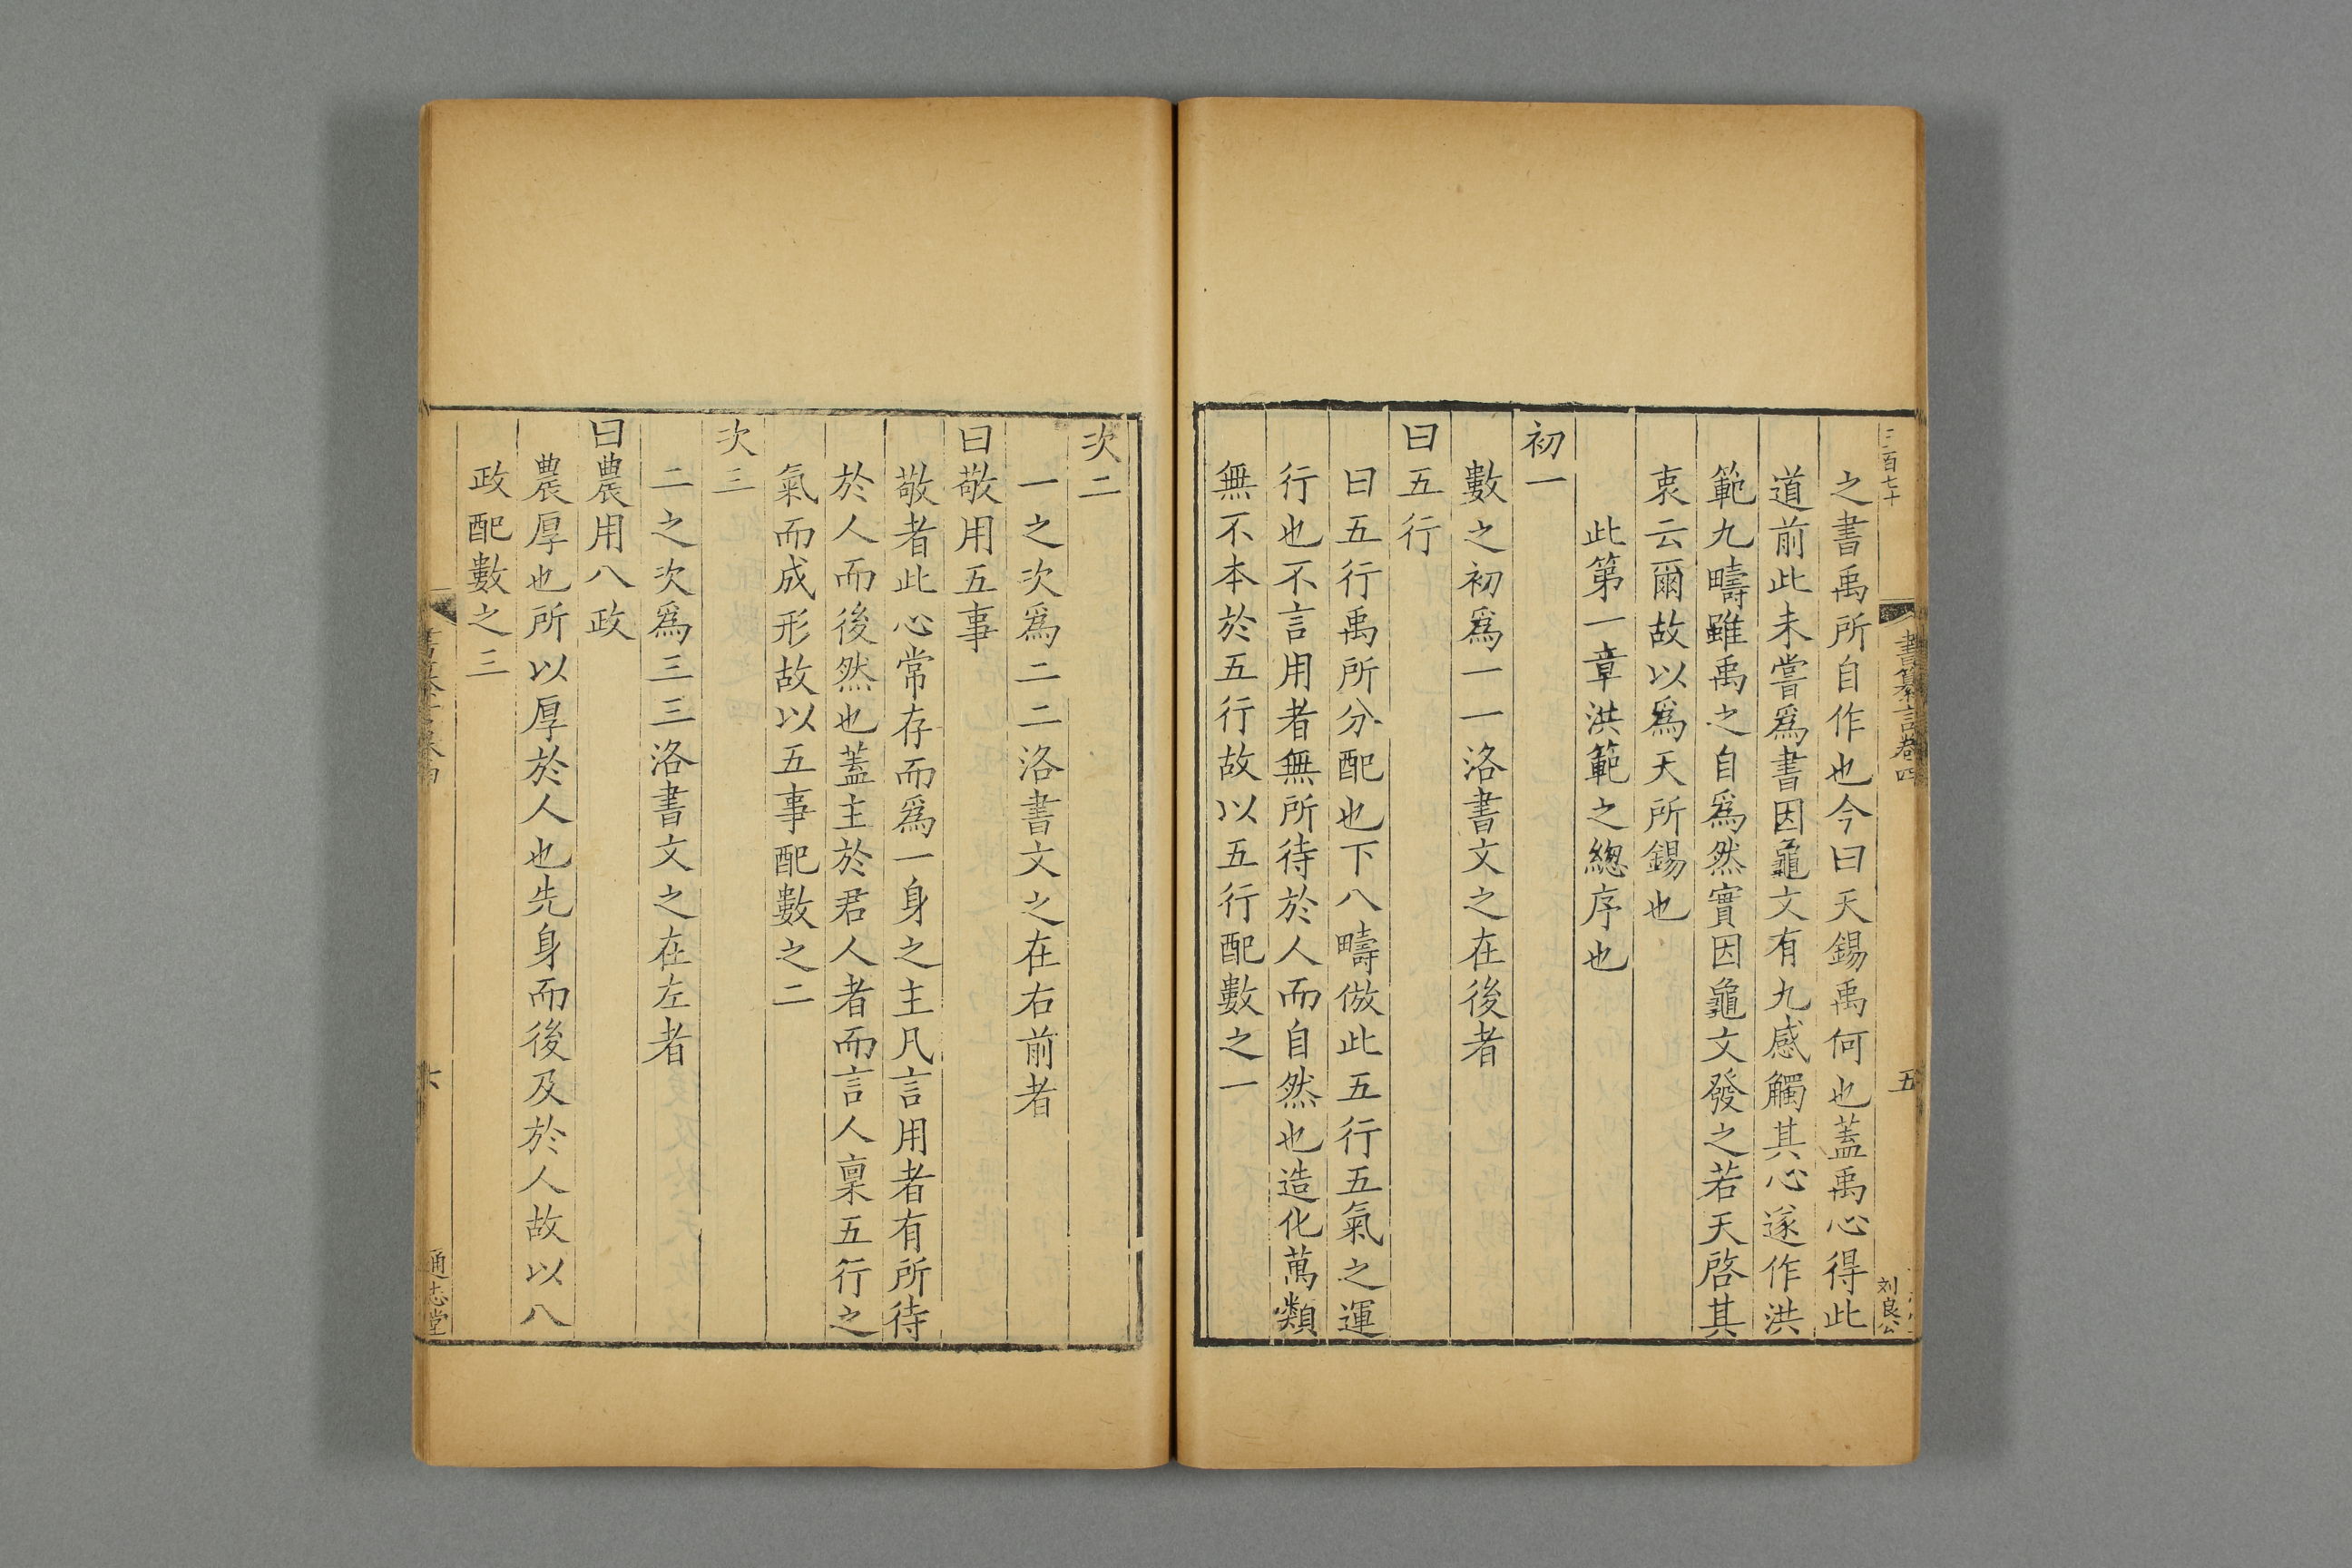 三百七十
書纂言卷四
五
刘良公
之書禹所自作也今曰天錫禹何也蓋禹心得此
道前此未嘗爲書因龜文有九感觸其心遂作洪
範九疇雖禹之自爲然實因龜文發之若天啓其
衷云爾故以爲天所錫也
此第一章洪範之緫序也
初一
數之初爲一一洛書文之在後者
曰五行
曰五行禹所分配也下八疇倣此五行五氣之運
行也不言用者無所待於人而自然也造化萬類
無不本於五行故以五行配數之一
次二
一之次爲二二洛書文之在右前者
曰敬用五事
敬者此心常存而爲一身之主凡言用者有所待
於人而後然也蓋主於君人者而言人稟五行之
氣而成形故以五事配數之二
次三
二之次爲三三洛書文之在左者
曰農用八政
農厚也所以厚於人也先身而後及於人故以八
政配數之三
六
通志堂